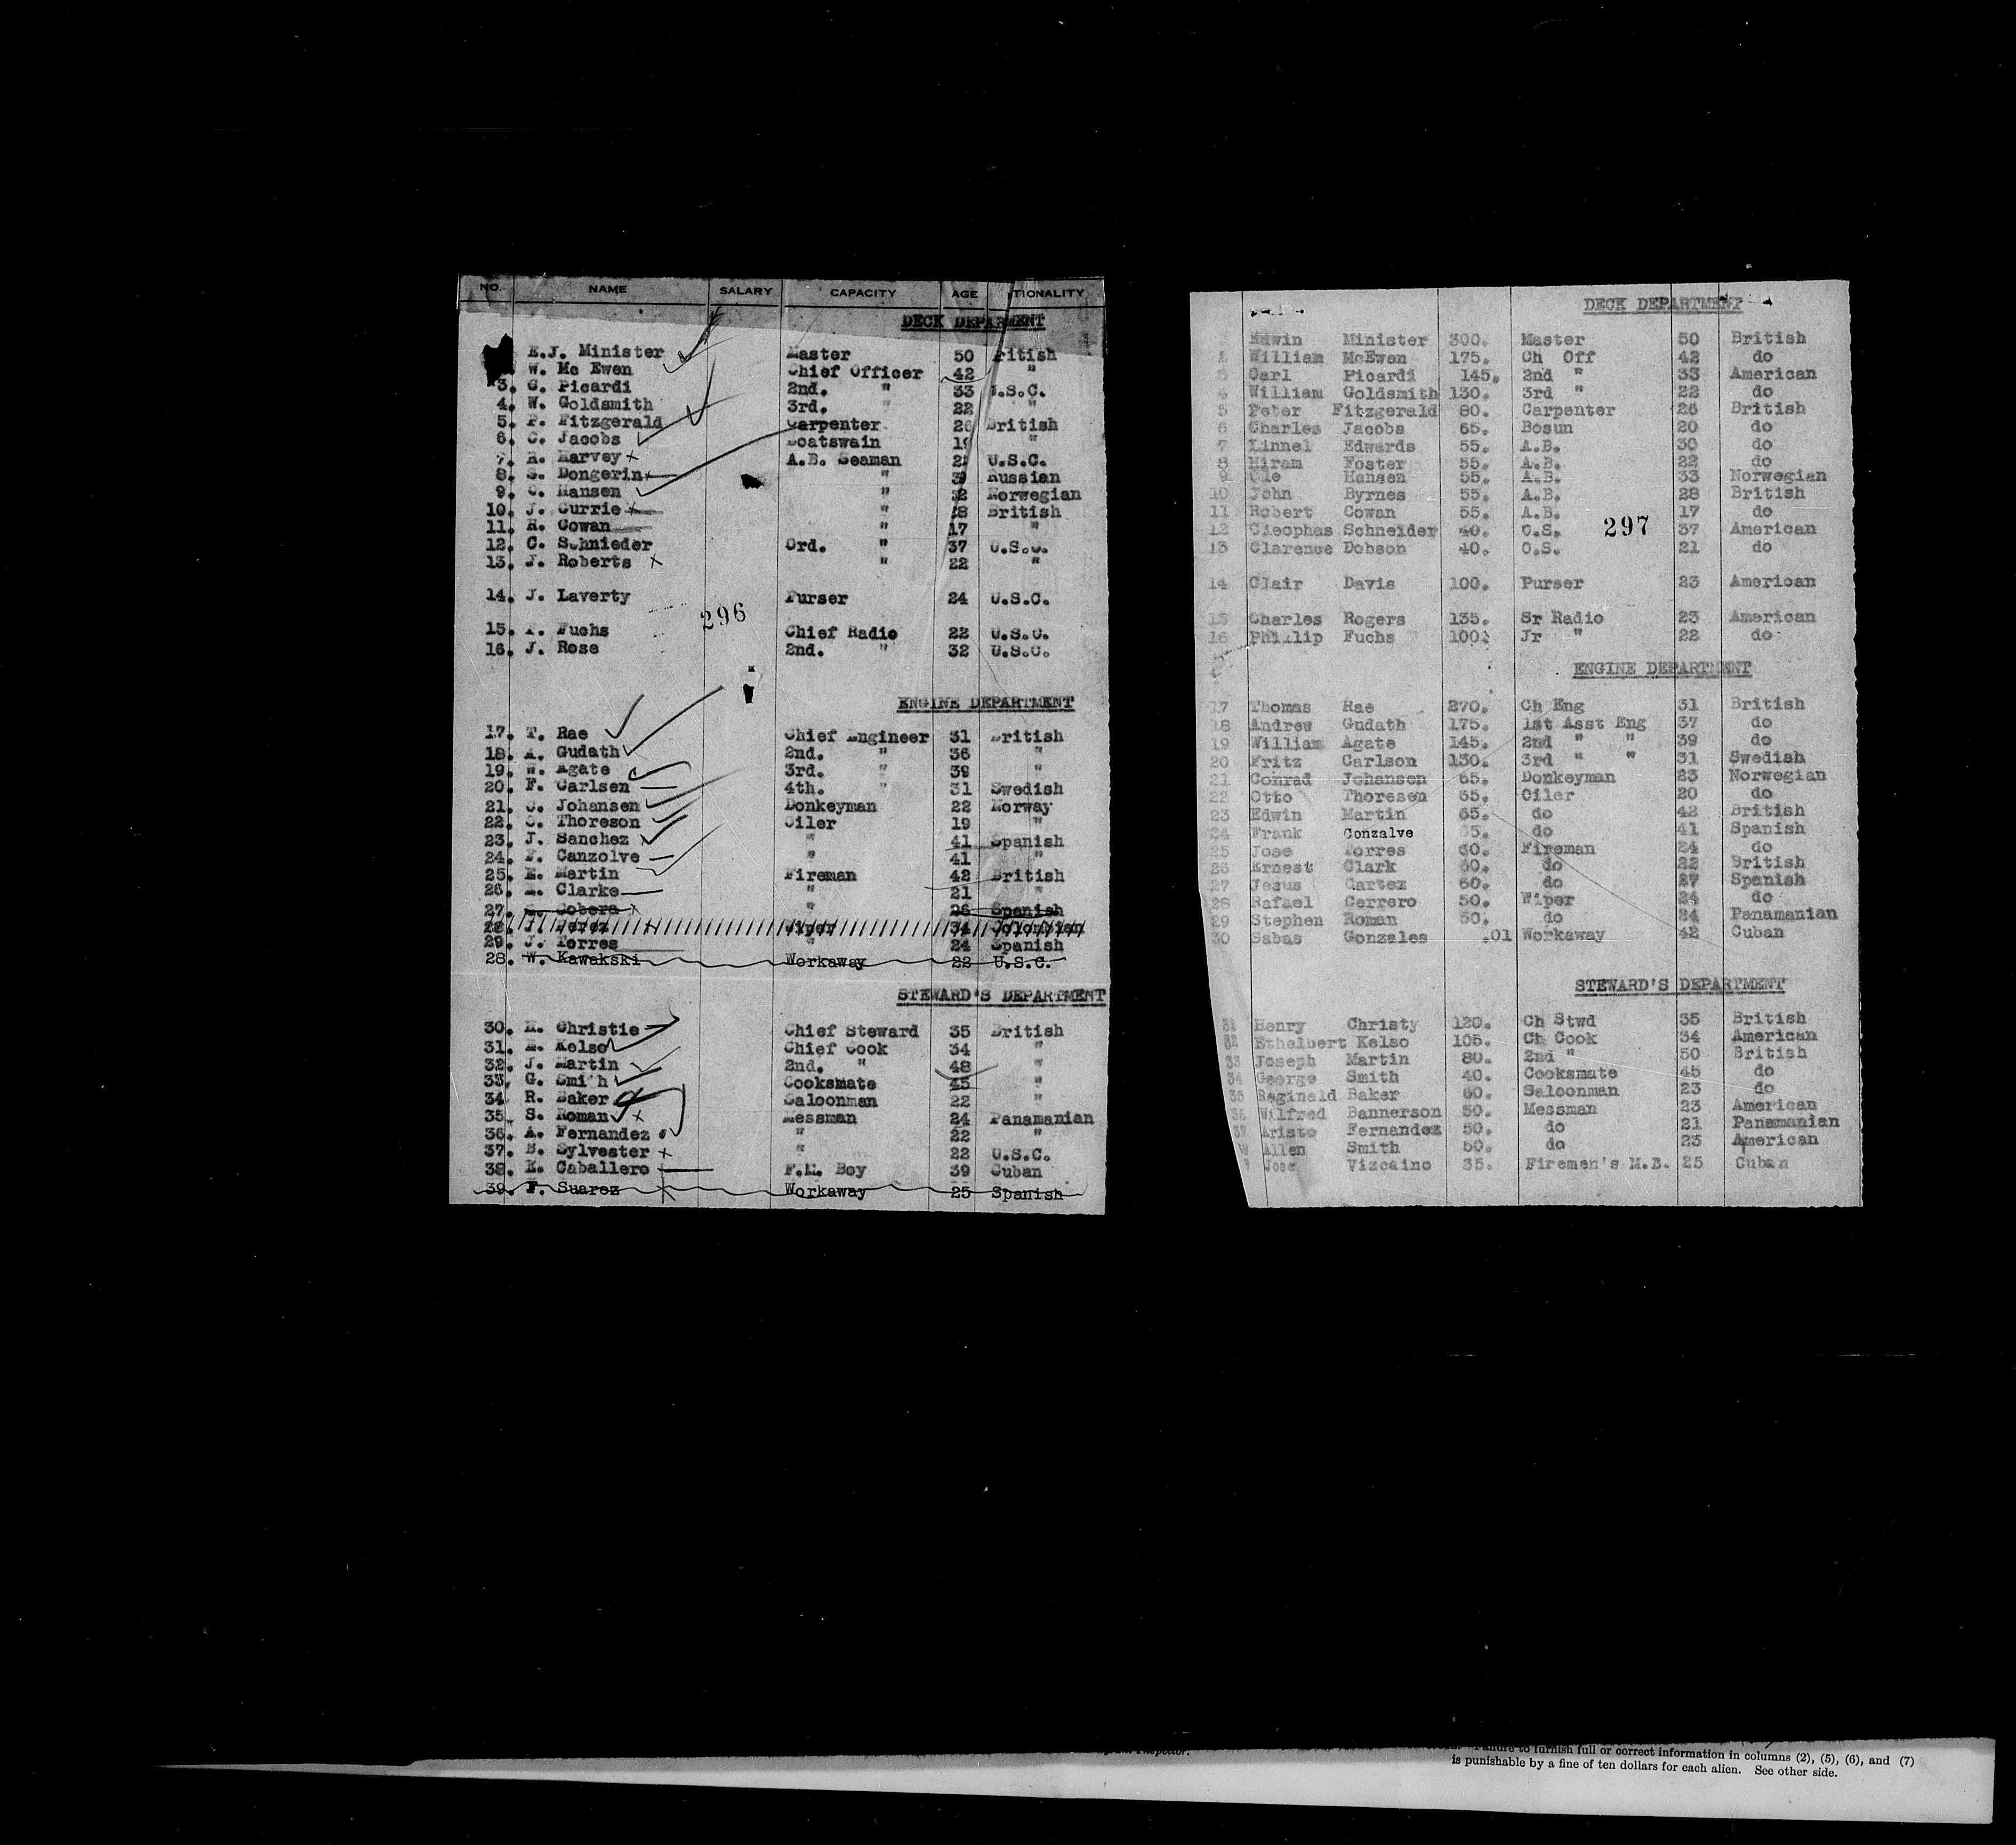 NO. NAME SALARY CAPACITY AGE TIONALITY
DECK DEPARTMENT
E.J. Minister Master 50 ritish
W. Mc Ewen Chief Officer 42 "
3. G. Picardi 2nd. " 33 U.S.C.
4. W. Goldsmith 3rd. " 22 "
5. P. Fitzgerald Carpenter 26 British
6. C. Jacobs Boatswain 19 "
7. R. Harvey A.B. Seaman 22 U.S.C.
8. S. Dongerin " Russian
9. O. Hansen " 32 Norwegian
10. J. Currie " 28 British
11. R. Cowan " 17 "
12. C. Schnieder Ord. " 37 U.S.C.
13. J. Roberts " 22 "
14. J. Laverty Purser 24 U.S.C.
296
15. P. Fuchs Chief Radio 22 U.S.C.
16. J. Rose 2nd. " 32 U.S.C.
ENGINE DEPARTMENT
17. T. Rae Chief Engineer 31 British
18. A. Gudath 2nd. " 36 "
19. W. Agate 3rd. " 39 "
20. F. Carlsen 4th. " 31 Swedish
21. C. Johansen Donkeyman 22 Norway
22. O. Thoreson Oiler 19 "
23. J. Sanchez " 41 Spanish
24. F. Canzolve " 41 "
25. E. Martin Fireman 42 British
26. E. Clarke " 21 "
27. Cobera " 26 Spanish
28. J. Perez Wiper 34 Colombian
29. J. Torres " 24 Spanish
28. W. Kawakski Workaway 22 U.S.C.
STEWARD'S DEPARTMENT
30. H. Christie Chief Steward 35 British
31. E. Kelso Chief Cook 34 "
32. J. Martin 2nd. " 48 "
33. G. Smith Cooksmate 45 "
34. R. Baker Saloonman 22 "
35. S. Roman Messman 24 Panamanian
36. A. Fernandez " 22 "
37. B. Sylvester " 22 U.S.C.
38. E. Caballero F.M. Boy 39 Cuban
39. F. Suarez Workaway 25 Spanish
DECK DEPARTMENT
Edwin Minister 300. Master 50 British
2 William McEwen 175. Ch Off 42 do
3 Carl Picardi 145. 2nd " 33 American
4 William Goldsmith 130. 3rd " 22 do
5 Peter Fitzgerald 80. Carpenter 26 British
6 Charles Jacobs 65. Bosun 20 do
7 Linnel Edwards 55. A.B. 30 do
8 Hiram Foster 55. A.B. 22 do
9 Ole Hansen 55. A.B. 33 Norwegian
10 John Byrnes 55. A.B. 28 British
11 Robert Cowan 55. A.B. 17 do
12 Cleophas Schneider 40. O.S. 37 American
297
13 Clarence Dobson 40. O.S. 21 do
14 Clair Davis 100. Purser 23 American
15 Charles Rogers 135. Sr Radio 23 American
16 Phillip Fuchs 100. Jr " 22 do
ENGINE DEPARTMENT
17 Thomas Rae 270. Ch Eng 31 British
18 Andrew Gudath 175. 1st Asst Eng 37 do
19 William Agate 145. 2nd " " 39 do
20 Fritz Carlson 130. 3rd " " 31 Swedish
21 Conrad Johansen 65. Donkeyman 23 Norwegian
22 Otto Thoresen 65. Oiler 20 do
23 Edwin Martin 65. do 42 British
24 Frank Gonzalve 65. do 41 Spanish
25 Jose Torres 60. Fireman 24 do
26 Ernest Clark 60. do 22 British
27 Jesus Cartez 60. do 27 Spanish
28 Rafael Cerrero 50. Wiper 24 do
29 Stephen Roman 50. do 24 Panamanian
30 Sabas Gonzales .01 Workaway 42 Cuban
STEWARD'S DEPARTMENT
31 Henry Christy 120. Ch Stwd 35 British
32 Ethelbert Kelso 105. Ch Cook 34 American
33 Joseph Martin 80. 2nd " 50 British
34 George Smith 40. Cooksmate 45 do
35 Reginald Baker 60. Saloonman 23 do
36 Wilfred Bannerson 50. Messman 23 American
37 Aristo Fernandez 50. do 21 Panamanian
Allen Smith 50. do 23 American
Jose Vizcaino 35. Firemen's M.B. 25 Cuban
Inspector.
Failure to furnish full or correct information in columns (2), (5), (6), and (7)
is punishable by a fine of ten dollars for each alien. See other side.